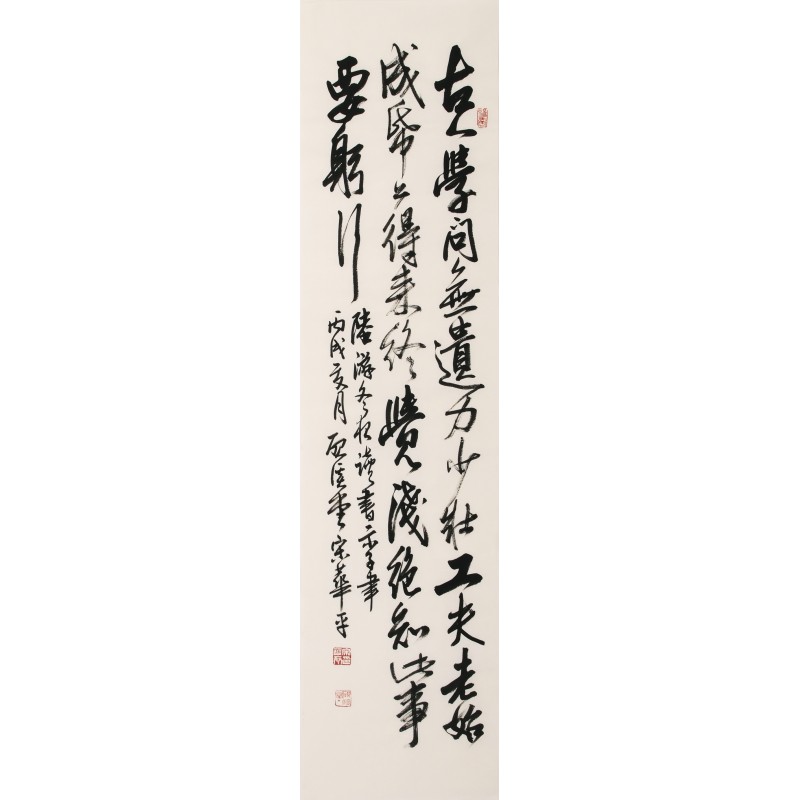 古人學問無遺力少壯工夫老始
成帋上得来終覺淺絕知此事
要躬行
陸游冬夜讀書示子聿
丙戌亥月 宋華平